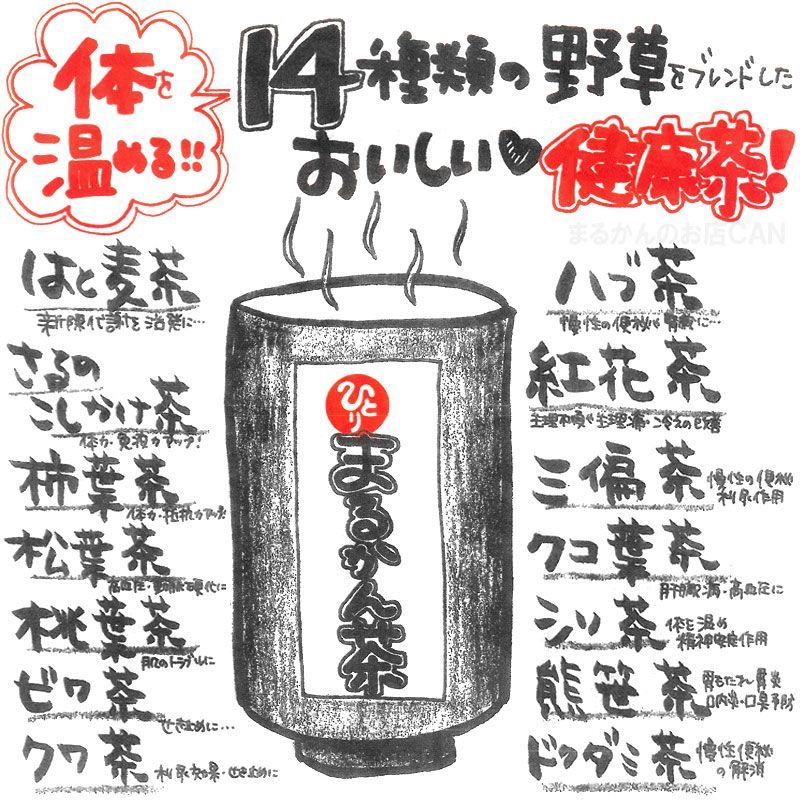 体を
温める!!
14種類の野草をブレンドした
おいしい♥健康茶!
まるかんのお店CAN
はと麦茶
新陳代謝を活発に…
さるの
こしかけ茶
体力・免疫力アップ!
柿葉茶
体力・抵抗力アップ
松葉茶
高血圧・動脈硬化に
桃葉茶
肌のトラブルに
ビワ茶
せき止めに…
クワ茶
利尿効果・せき止めに
ひとり
まるかん茶
ハブ茶
慢性の便秘や胃腸に…
紅花茶
生理不順や生理痛・冷えの改善
三偏茶
慢性の便秘
利尿作用
クコ葉茶
肝臓病・高血圧に
シソ茶
体を温め
精神安定作用
熊笹茶
胃もたれ・胃炎
口内炎・口臭予防
ドクダミ茶
慢性便秘
の解消